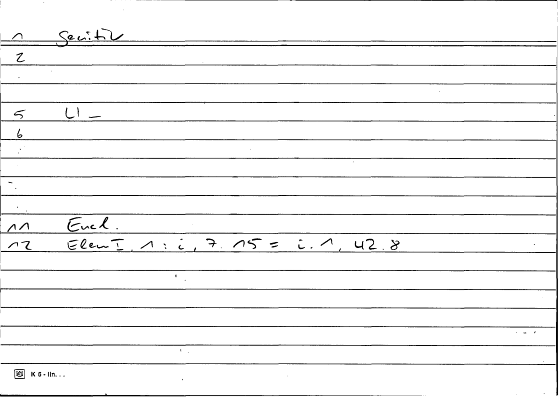 1 Genitiv
2
5 LI _
6
11 Eucl.
12 Elem I. 1 : i, 7. 15 = i. 1, 42. 8
K 6 - lin...